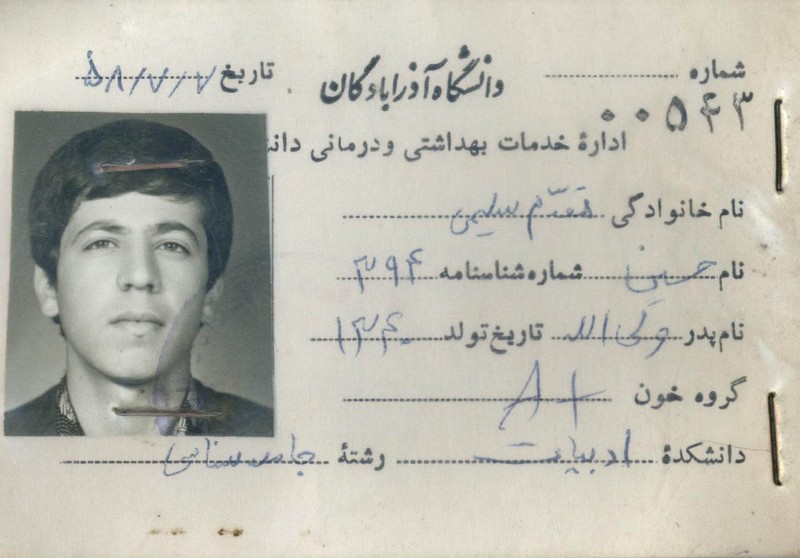 شماره دانشگاه آذرابادگان تاریخ ۵۸/۷/۷
۰۰۵۴۳
ادارهٔ خدمات بهداشتی و درمانی
نام خانوادگی مقدّم سلیمی
نام حسین شماره شناسنامه ۳۹۴
نام پدر ولی الله تاریخ تولد ۱۳۴۰
گروه خون A+
دانشکدهٔ ادبیات رشتهٔ جامعه شناسی